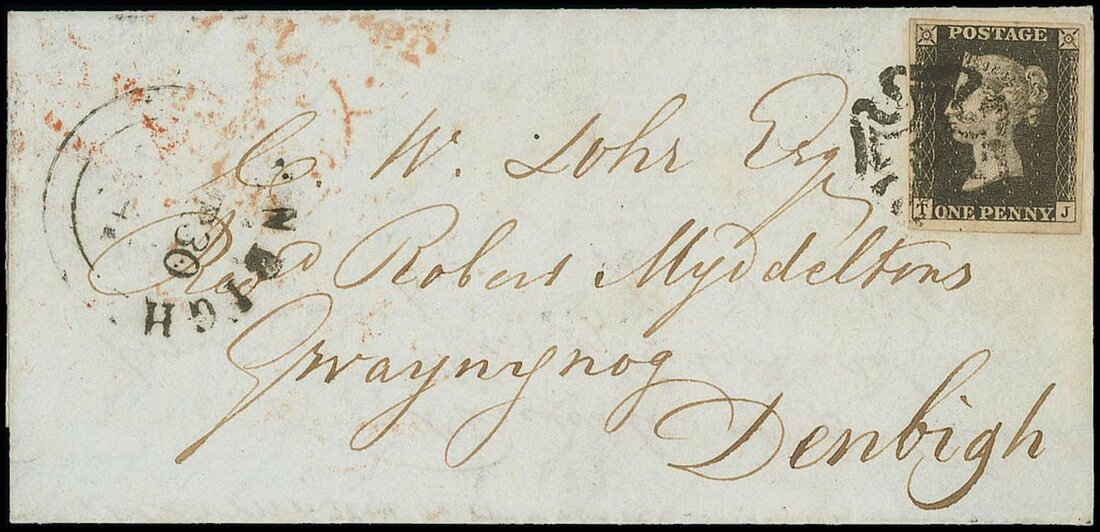 POSTAGE
T ONE PENNY J
C. W. Lohr Esq
Revd Robert Myddeltons
Gwaynynog
Denbigh
30